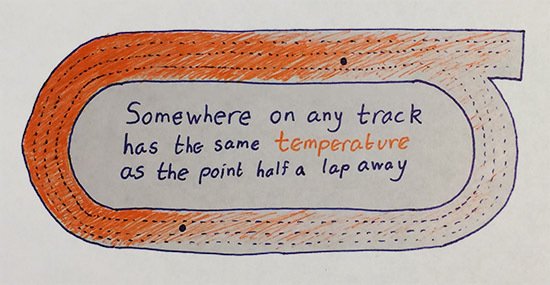 Somewhere on any track
has the same temperature
as the point half a lap away